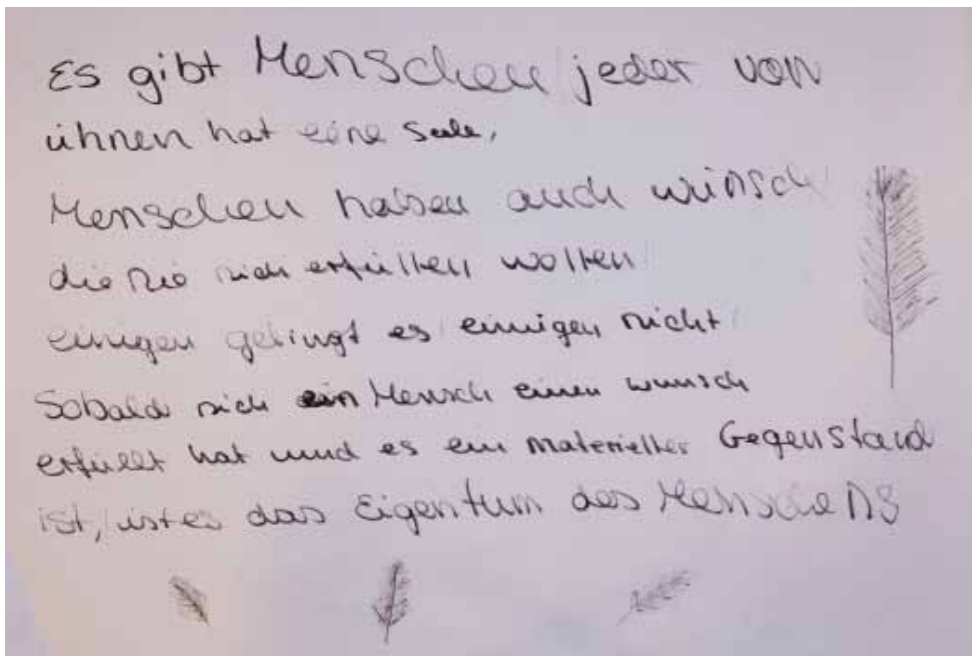 Es gibt Menschen jeder von
ihnen hat eine Seele,
Menschen haben auch wünsch
die sie sich erfüllen wollen
einigen gelingt es einigen nicht
Sobald sich ein Mensch einen wunsch
erfüllt hat und es ein materieller Gegenstand
ist, ist es das Eigentum des Menschens